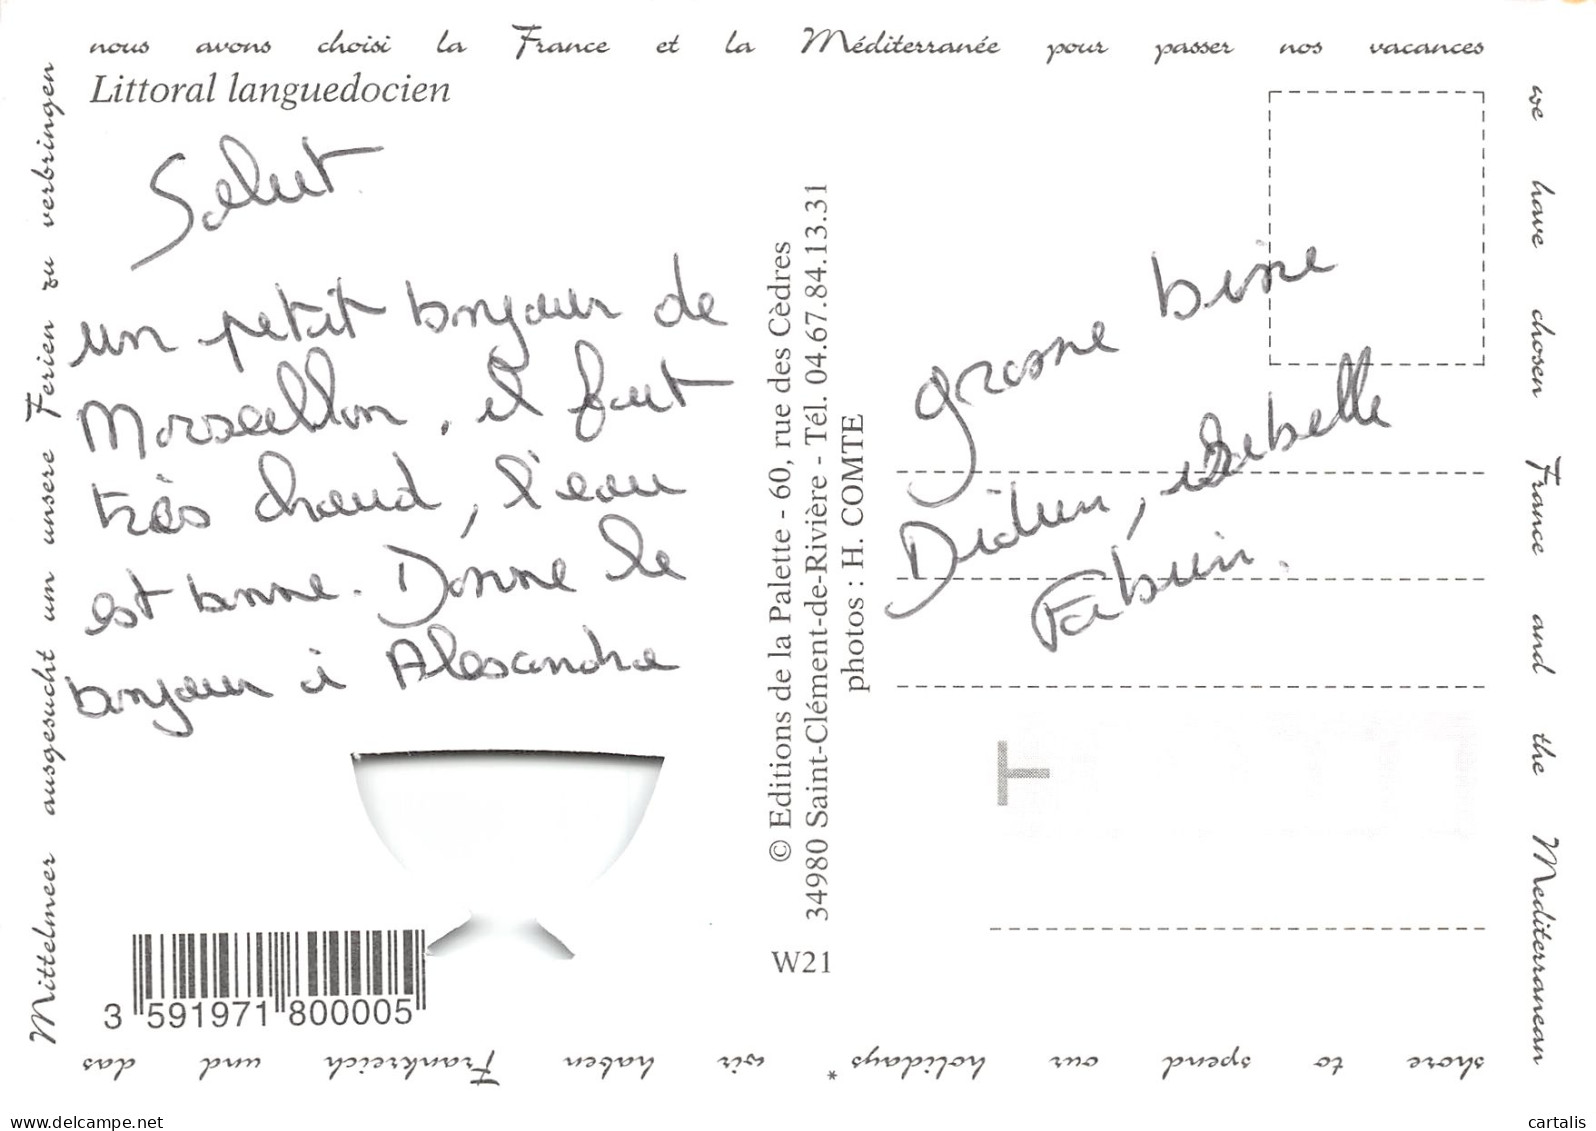 nous avons choisi la France et la Méditerranée pour passer nos vacances
Littoral languedocien
Salut
un petit bonjour de
Marseillan, il fait
très chaud, l'eau
est bonne. Donne le
bonjour à Alexandra
grosse bise
Didier, Isabelle
Fabien.
© Editions de la Palette - 60, rue des Cèdres
34980 Saint-Clément-de-Rivière - Tél. 04.67.84.13.31
photos : H. COMTE
W21
T
3 591971 800005
we have chosen France and the Mediterranean
shore to spend our holidays *
wir haben Frankreich und das
Mittelmeer ausgesucht um unsere Ferien zu verbringen
www.delcampe.net
cartalis